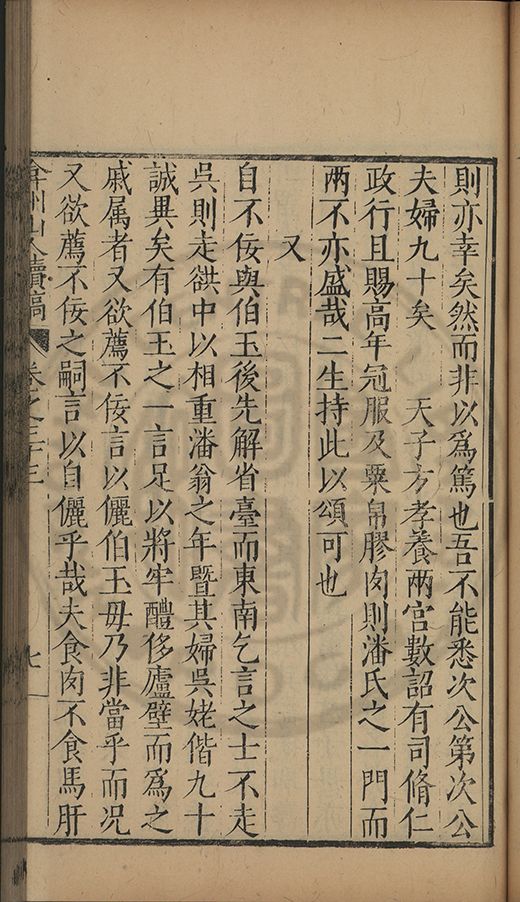 則亦幸矣然而非以爲篤也吾不能悉次公第次公
夫婦九十矣　　天子方孝養兩宮數詔有司脩仁
政行且賜高年冠服及粟帛膠肉則潘氏之一門而
兩不亦盛哉二生持此以頌可也
又
自不佞與伯玉後先解省臺而東南乞言之士不走
吳則走歙中以相重潘翁之年暨其婦吳姥偕九十
誠異矣有伯玉之一言足以將牢醴侈廬壁而爲之
戚属者又欲薦不佞言以儷伯玉毋乃非當乎而况
又欲薦不佞之嗣言以自儷乎哉夫食肉不食馬肝
弇州山人續稿　卷之三十三　七